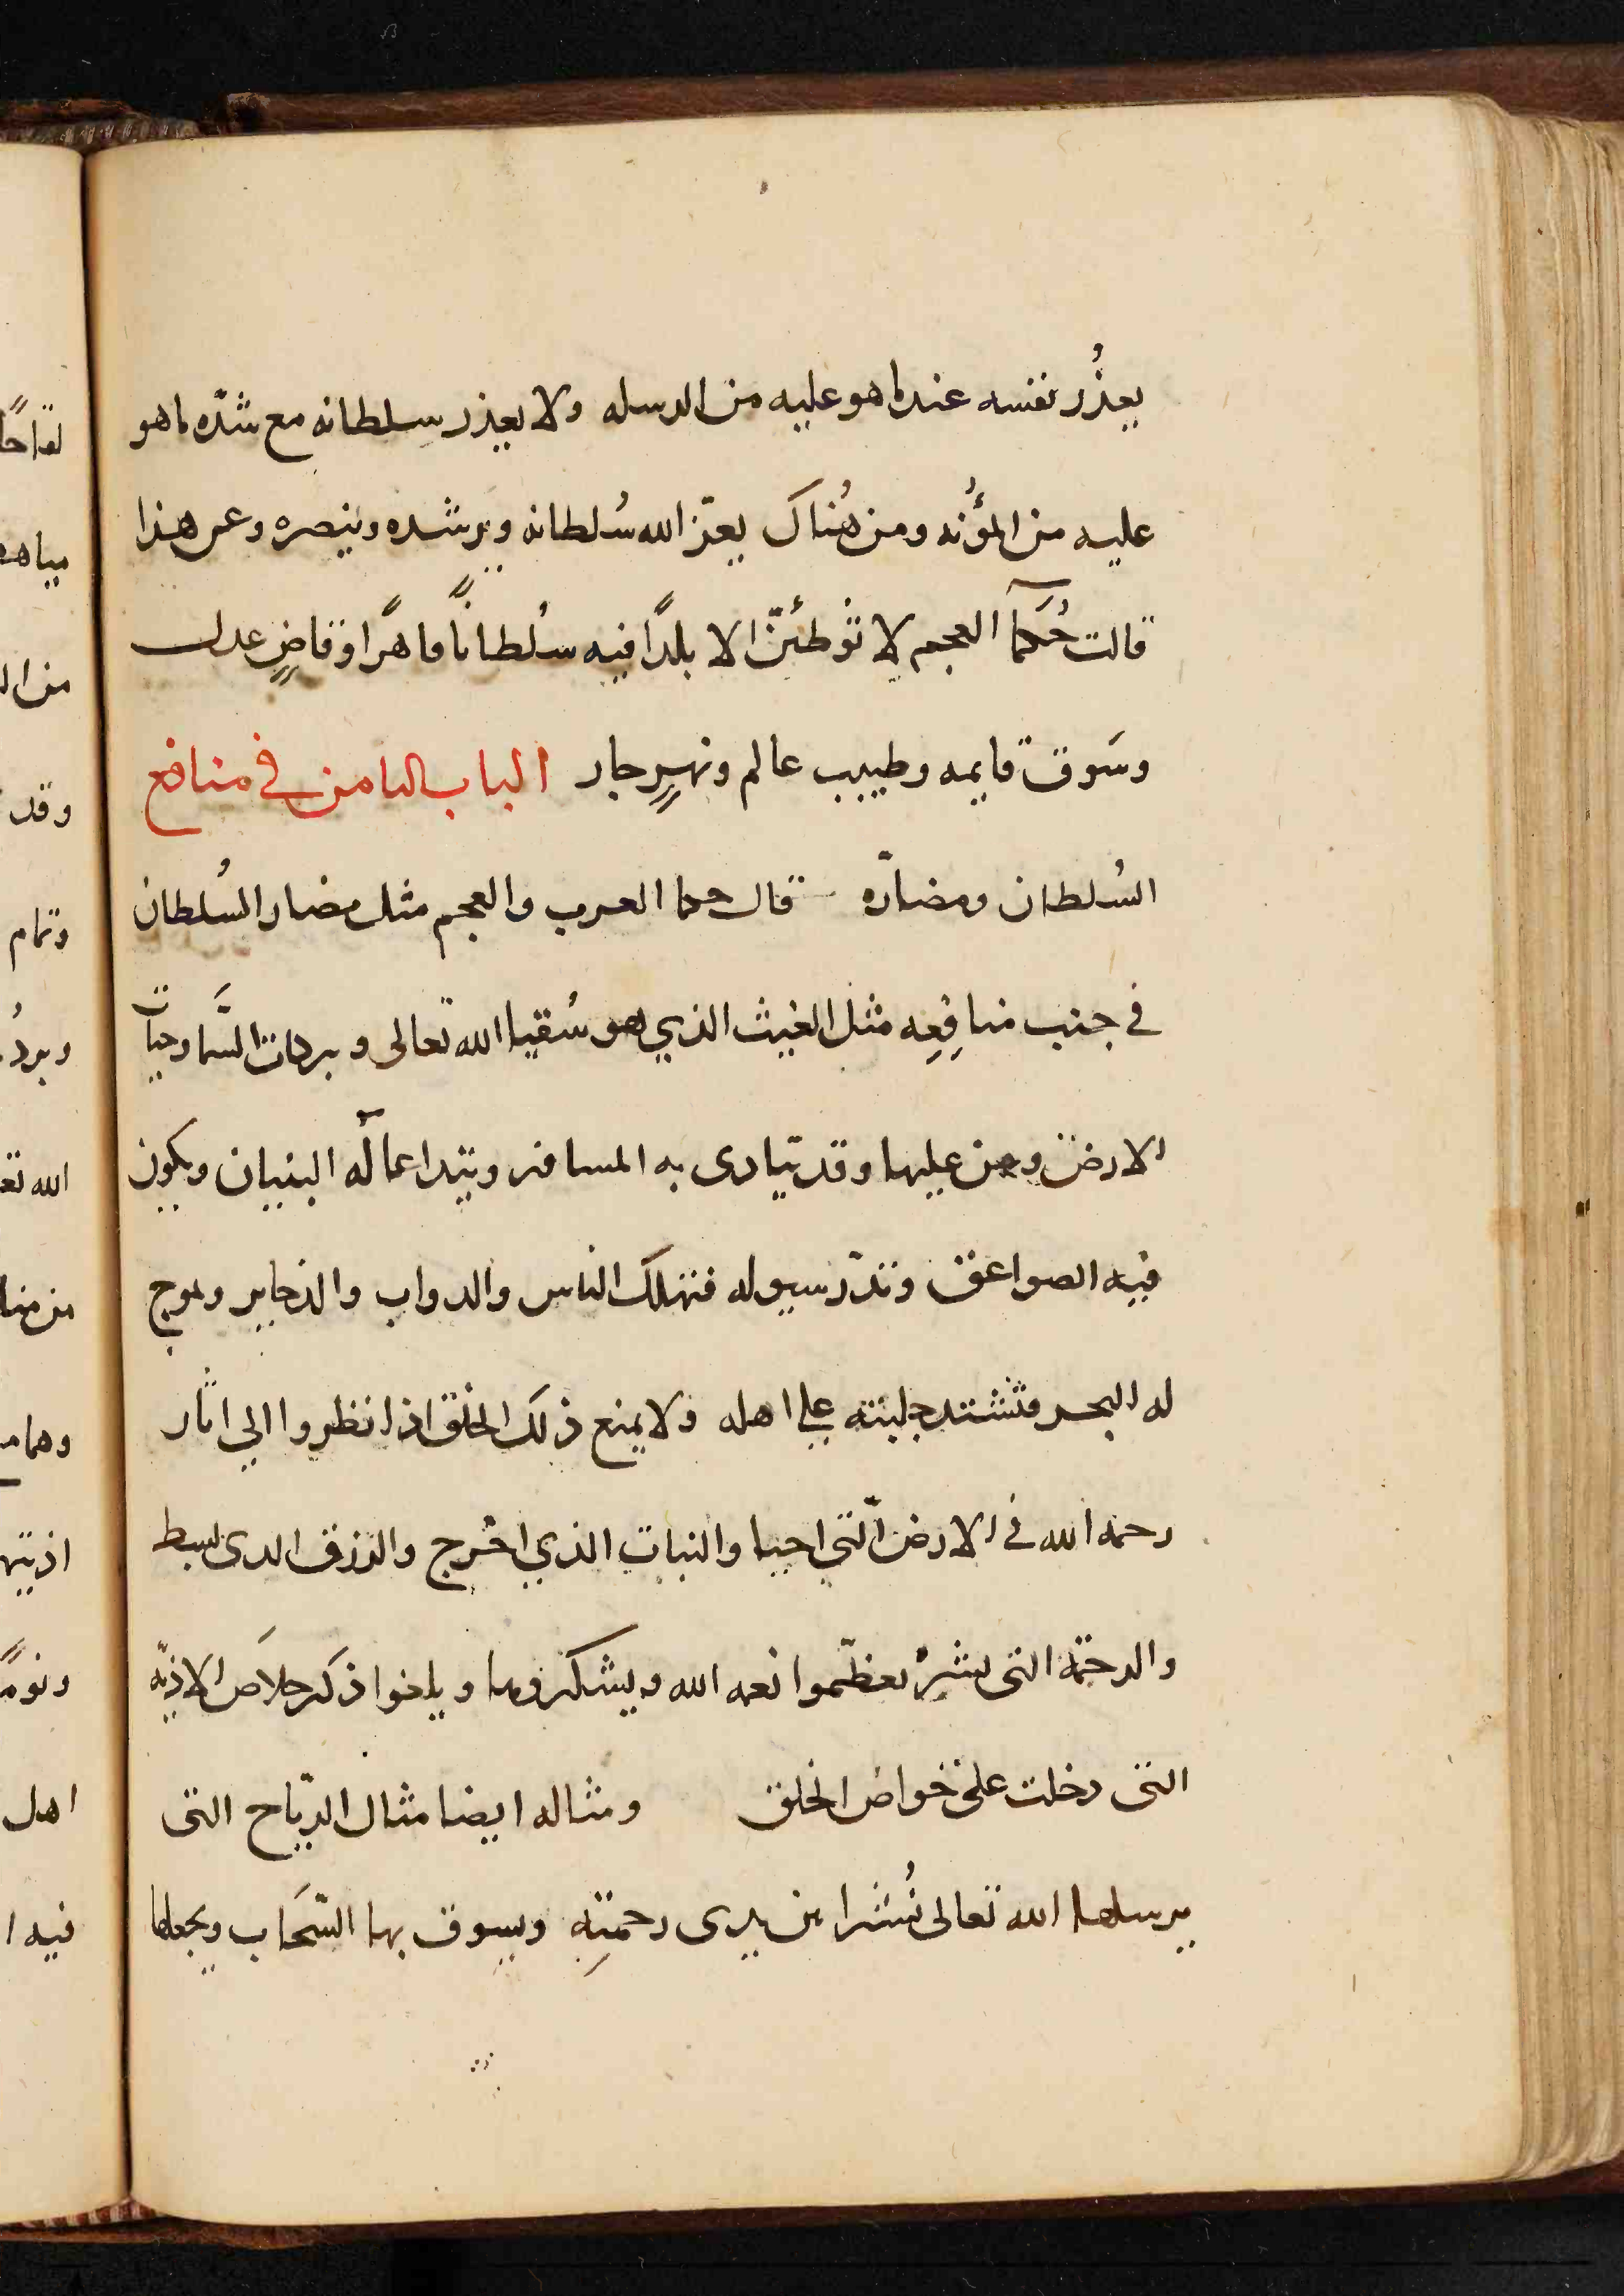 يعذُر نفسه عندما هو عليه من الرسله ولا يعذر سلطانه مع شدّه ما هو
عليه من المؤُنه ومن هُناك يعزّ الله سُلطانه ويرشده وينصره وعن هذا
قالت حُكمآ العجم لا توُطئنّ الا بلدًا فيه سُلطانًا قاهرًا وقاضٍ عدل
وسَوق قايمه وطبيب عالم ونهرٍ جار الباب الثامن في منافع
السُلطان ومضارّه قال حكما العرب والعجم مثل مضار السُلطان
في جنب منافِعِه مثل الغيث الذي هو سُقيا الله تعالى وبركات السَّما وحياة
الارض ومن عليها وقد يتاذى به المسافر ويتداعا لَه البنيان ويكون
فيه الصواعق وتدّر سيوله فتهلك الناس والدواب والذخاير ويموج
له البحر فتشتد بليته على اهله ولا يمنع ذلك الخلق اذا نظروا الي اثار
رحمه الله في الارض الّتي احيا والنبات الذي اخرج والرزق الدى بسط
والرحمّة التى نشرْ يعظّموا نعمه الله ويشكروها ويلغوا ذكر خلاَص الاذيّه
التى دخلت على خواص الخلق ومثاله ايضا مثال الريّاح التى
يرسلها الله تعالى نُشرا بين يدى رحمتِه ويسوق بها السّحَاب ويجعلها